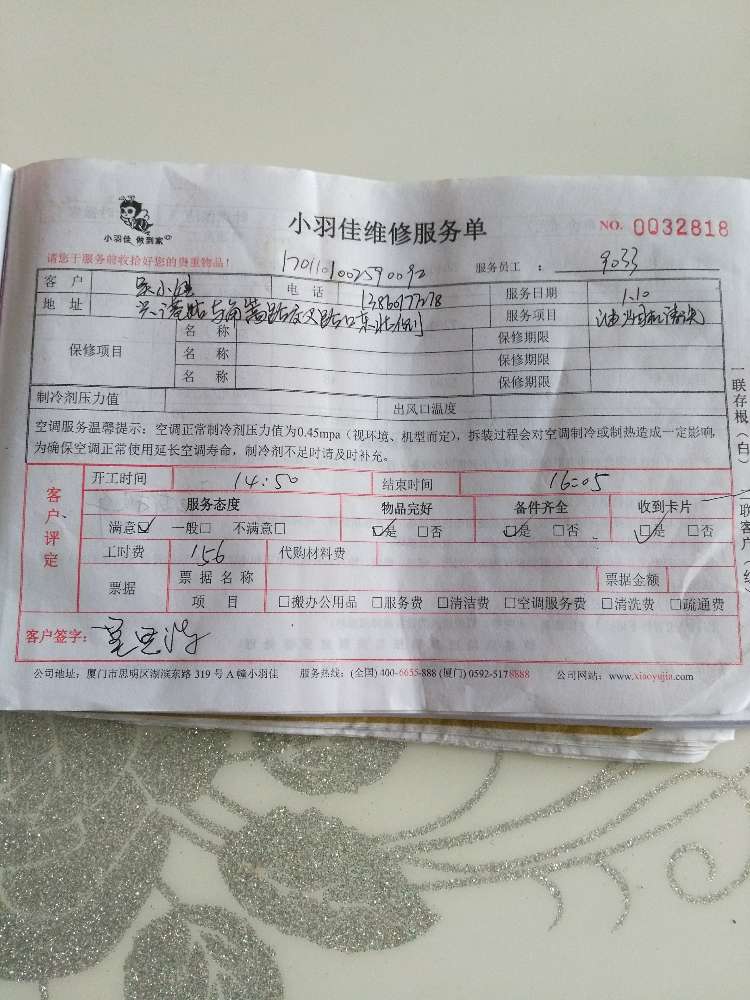 小羽佳 做到家
小羽佳维修服务单
NO. 0032818
请您于服务前收拾好您的贵重物品!
1701101002590092
服务员工 : 9033
客 户 小 电 话 13860177278 服务日期 1.10
地 址 兴港路与 路交叉路口东北侧 服务项目 油烟机清洗
保修项目 名 称 保修期限
名 称 保修期限
名 称 保修期限
制冷剂压力值 出风口温度
空调服务温馨提示:空调正常制冷剂压力值为0.45mpa(视环境、机型而定),拆装过程会对空调制冷或制热造成一定影响,
为确保空调正常使用延长空调寿命,制冷剂不足时请及时补充。
客户评定
开工时间 14:50 结束时间 16:05
服务态度 物品完好 备件齐全 收到卡片
满意☑ 一般□ 不满意□ ☑是 □否 ☑是 □否 ☑是 □否
工时费 156 代购材料费
票据 票据名称 票据金额
项 目 □搬办公用品 □服务费 □清洁费 □空调服务费 □清洗费 □疏通费
客户签字:
公司地址:厦门市思明区湖滨东路 319 号 A 幢小羽佳 服务热线:(全国) 400-6655-888 (厦门) 0592-5178888 公司网站:www.xiaoyujia.com
一联存根(白)
联客户(红)